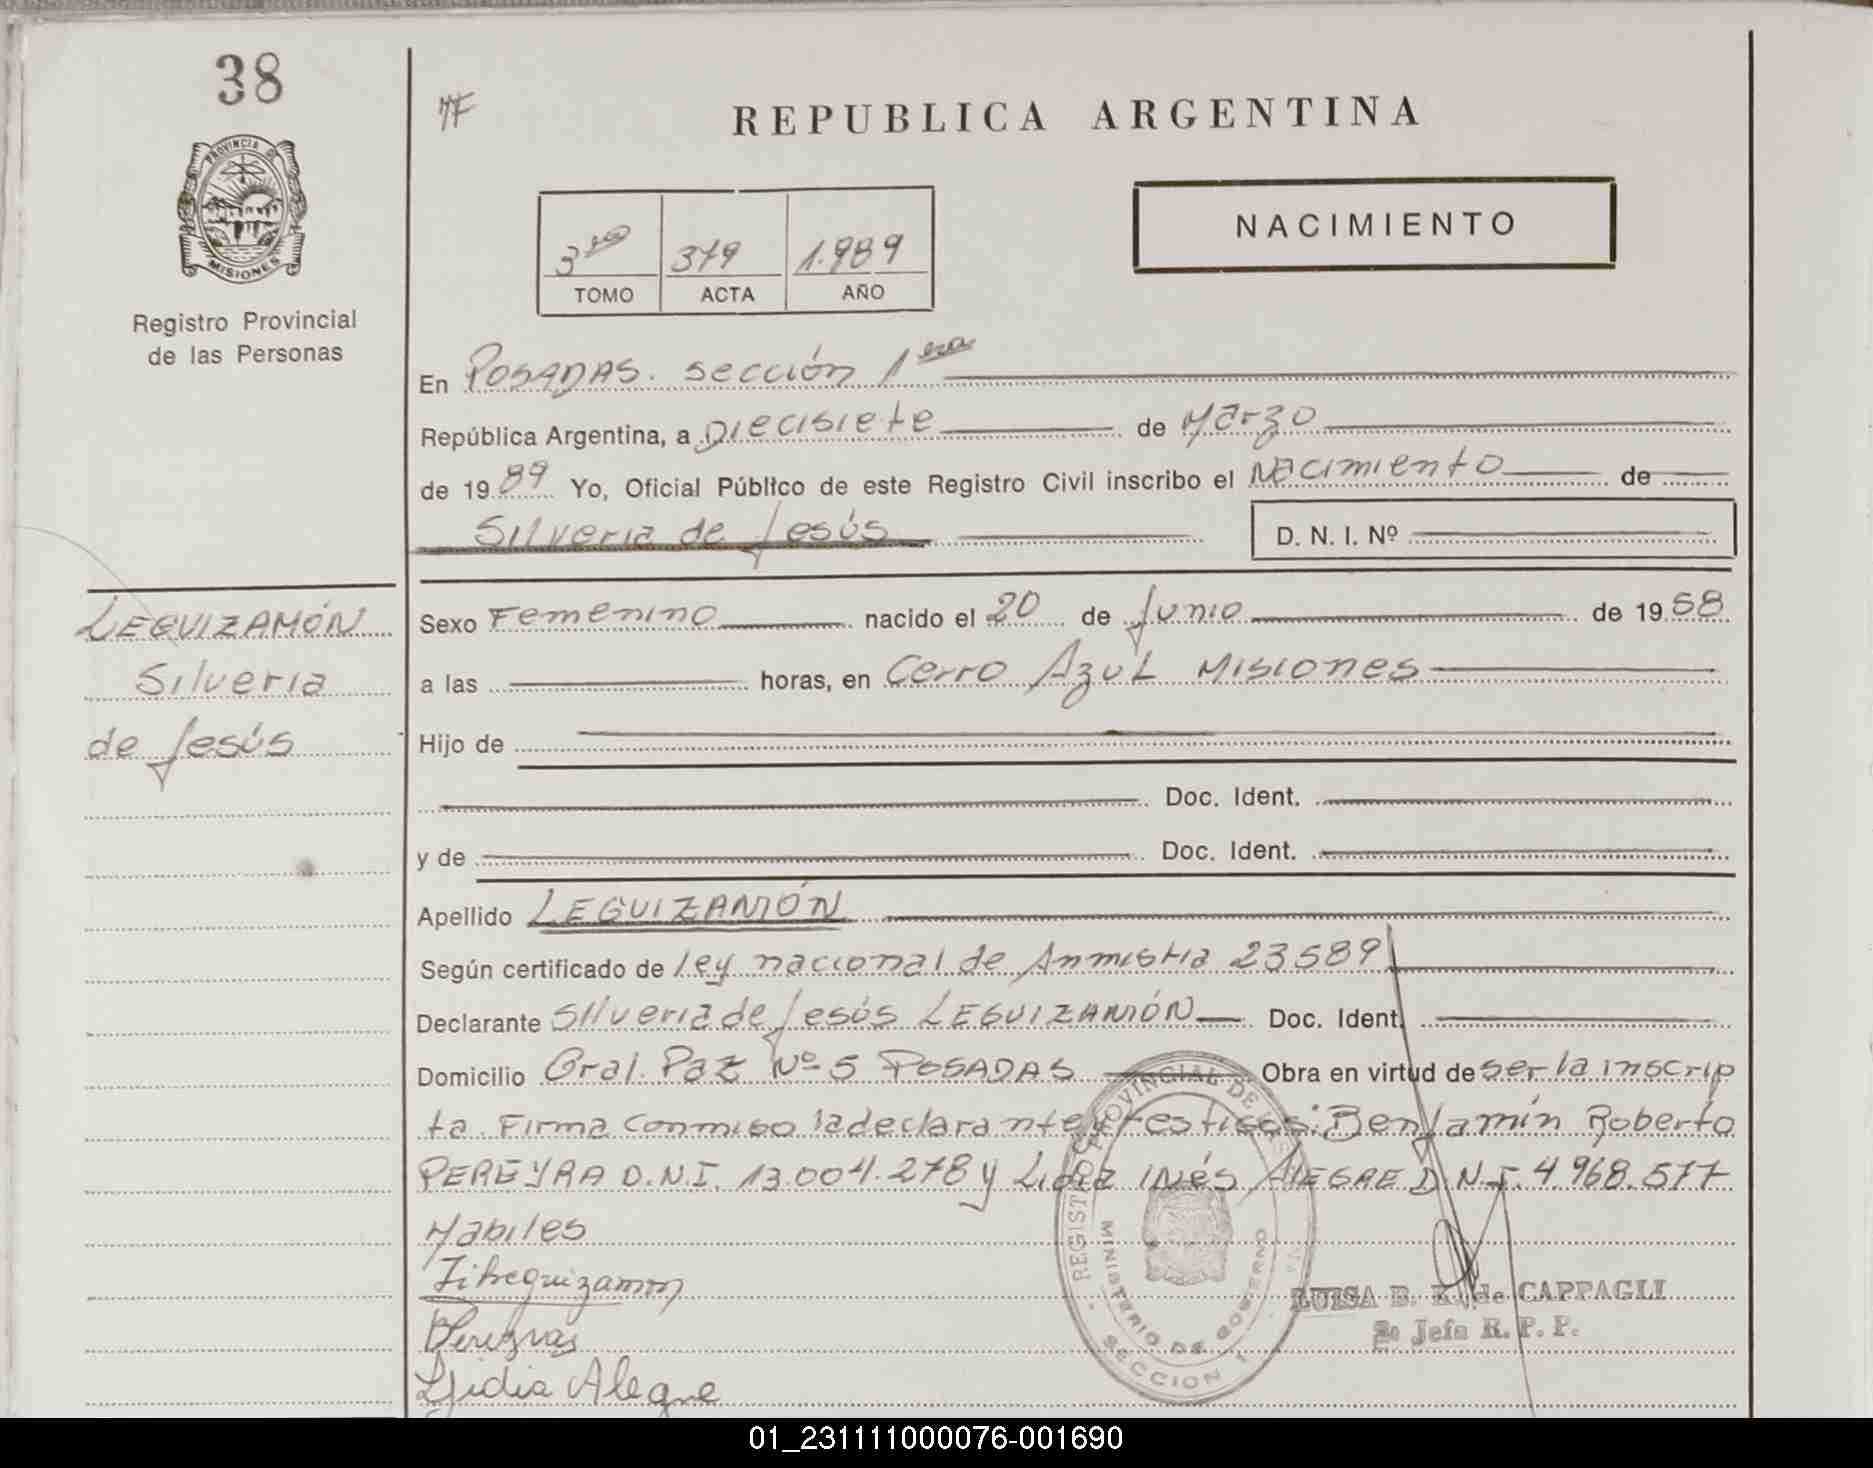 38
PROVINCIA DE
MISIONES
Registro Provincial
de las Personas
LEGUIZAMÓN
Silveria
de Jesús
REPUBLICA ARGENTINA
NACIMIENTO
3ro 379 1.989
TOMO ACTA AÑO
En POSADAS. sección 1era
República Argentina, a Diecisiete de Marzo
de 19 89 Yo, Oficial Público de este Registro Civil inscribo el Nacimiento de
Silveria de Jesús D. N. I. Nº
Sexo Femenino nacido el 20 de Junio de 19 58
a las horas, en Cerro Azul Misiones
Hijo de
Doc. Ident.
y de Doc. Ident.
Apellido LEGUIZAMÓN
Según certificado de ley nacional de Anmistia 23589
Declarante Silveria de Jesús LEGUIZAMÓN Doc. Ident.
Domicilio Gral. Paz Nº 5 POSADAS Obra en virtud de ser la inscrip
ta. Firma conmigo la declarante y testigos: Benjamín Roberto
PEREYRA D.N.I. 13.004.278 y Lidia Inés ALEGRE D.N.I. 4.968.577
Habiles
Lidia Alegre
REGISTRO PROVINCIAL DE LAS
MINISTERIO DE GOBIERNO
SECCION 1
LUISA B. K. de CAPPAGLI
2º Jefa R. P. P.
01_231111000076-001690